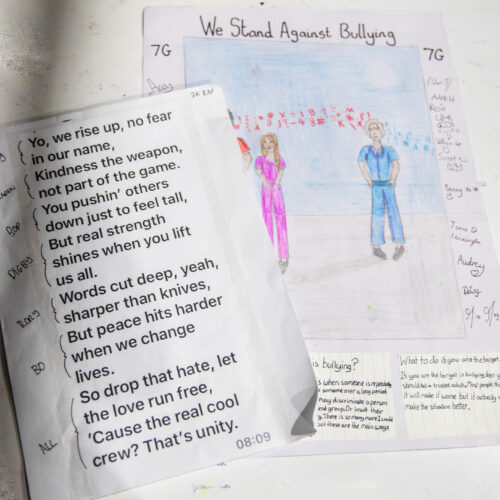 We Stand Against Bullying
7G
7G
7K RAP
Yo, we rise up, no fear
in our name,
Kindness the weapon,
not part of the game.
You pushin' others
down just to feel tall,
But real strength
shines when you lift
us all.
Words cut deep, yeah,
sharper than knives,
But peace hits harder
when we change
lives.
So drop that hate, let
the love run free,
'Cause the real cool
crew? That's unity.
08:09
DIGBY
RORY
BO
ALL
Rosie
Audrey
Daisy
is bullying?
is when someone is repeatedly
someone over a long period
may discriminate a person
and group. Or insult their
There is so many more I could
but these are the main ways
What to do is you are the target
If you are the target in bullying, then y
should tell a trusted adult. Most people th
it will make it worse but it actually
make the situation better.